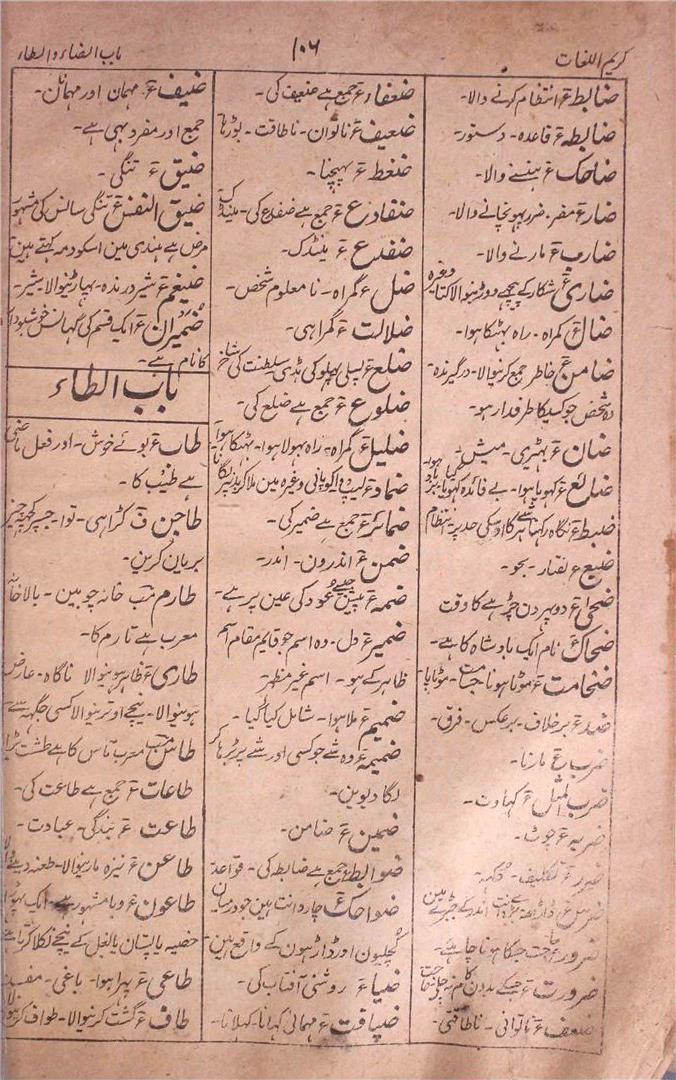 کریم اللغات
۱۰۶
باب الضاد والطاء
ضابطہ ع انتظام کرنے والا۔
ضابطہ ع قاعدہ۔ دستور۔
ضاحک ع ہنسنے والا۔
ضار ع مضر۔ ضرر پہونچانے والا۔
ضارب ع مارنے والا۔
ضاری ع شکار کے پیچھے دوڑنیوالا کتا وغیرہ
ضال ع گمراہ۔ راہ بھٹکا ہوا۔
ضامن ع خاطر جمع کرنیوالا۔ درگیرندہ۔
وہ شخص جو کسیکا طرفدار ہو۔
ضان ع بھیڑی۔ میش۔
ضائع ع کھویا ہوا۔ بے فائدہ کھویا گیا ہوا۔
ضبط ع نگاہ رکھنا ہر کا اوسکی حد پر۔ انتظام
ضبع ع کفتار۔ بجو۔
ضحیٰ ع دوپہر دن چڑھے کا وقت
ضحاک ع نام ایک بادشاہ کا ہے۔
ضخامت ع موٹا ہونا جسامت۔ موٹاپا۔
ضد ع برخلاف۔ برعکس۔ فرق۔
ضرب ع مارنا۔
ضرب المثل ع کہاوت۔
ضربہ ع چوٹ۔
ضرر ع تکلیف۔ دکھ۔
ضرور ع جسکا ہونا چاہیے۔
ضرورت ع جسکے بدون کام نہ چلے حاجت
ضعف ع ناتوانی۔ ناطاقتی۔
ضعفاء ع جمع ہے ضعیف کی۔
ضعیف ع ناتوان۔ ناطاقت۔ بوڑھا
ضغط ع بھینچنا۔
ضفادع ع جمع ہے ضفدع کی۔ مینڈک
ضفدع ع مینڈک۔
ضل ع گمراہ۔ نامعلوم شخص۔
ضلالت ع گمراہی۔
ضلع ع پسلی پہلو کی ہڈی سلطنت کی شاخ
ضلوع ع جمع ہے ضلع کی۔
ضلیل ع گمراہ۔ راہ بھولا ہوا۔ بھٹکا ہوا۔
ضماد ع لیپ دوا کو پانی وغیرہ مین ملا کر بدن پر لگانا
ضمائر ع جمع ہے ضمیر کی۔
ضمن ع اندرون۔ اندر۔
ضمہ ع پیش جیسے عود کی عین پر ہے۔
ضمیر ع دل۔ وہ اسم جو قایم مقام اسم
ظاہر کے ہو۔ اسم غیر مظہر۔
ضمیم ع ملا ہوا۔ شامل کیا گیا۔
ضمیمہ ع وہ شے جو کسی اور شے پر بڑھا کر
لگا دیوین۔
ضمین ع ضامن۔
ضوابط ع جمع ہے ضابطہ کی۔ قواعد
ضواحک ع چار دانت ہین جو درمیان
کچلیون اور داڑہون کے واقع ہین۔
ضیاء ع روشنی آفتاب کی۔
ضیافت ع مہمانی کھانا۔ کھلانا۔
ضیف ع مہمان اور مہمانان۔
جمع اور مفرد بھی ہے۔
ضیق ع تنگی۔
ضیق النفس ع تنگی سانس کی مشہور
مرض ہے ہندی مین اسکو دمہ کہتے ہین
ضیغم ع شیر درندہ۔ پھاڑنیوالا شیر۔
ضمیران ع ایک قسم کی گھانس خوشبودار
کا نام ہے۔
باب الطاء
طاب ع بوئے خوش۔ اور فعل ماضی
ہے طیب کا۔
طاجن ف کڑاہی۔ توا۔ جسپر کچھ چیز
بریان کرین۔
طارم مب خانہ چوبین۔ بالاخانہ
معرب ہے تارم کا۔
طاری ع ظاہر ہونیوالا ناگاہ۔ عارض
ہونیوالا۔ نیچے اوترنیوالا کسی جگہہ سے۔
طاس مب معرب تاس کا ہے طشت بڑا
طاعات ع جمع ہے طاعت کی۔
طاعت ع بندگی۔ عبادت۔
طاعن ع نیزہ مارنیوالا۔ طعنہ دینے والا
طاعون ع وبا مشہور ہے۔ ایک پھوڑا
خصیہ یا پستان یا بغل کے نیچے نکلا کرتا ہے
طاغی ع پھرا ہوا۔ باغی۔ مفسد
طاف ع گشت کرنیوالا۔ طواف کرنیوالا